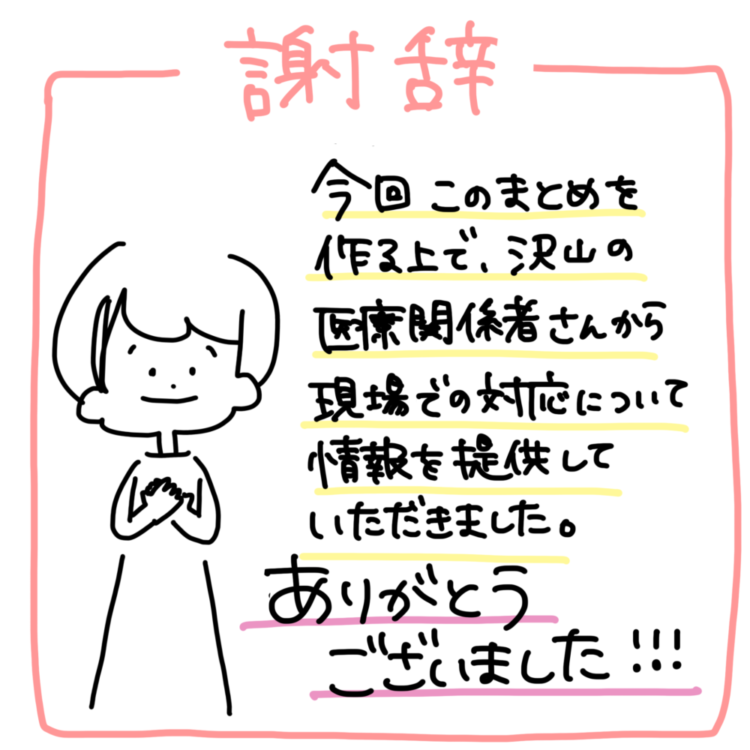 謝辞
今回このまとめを
作る上で、沢山の
医療関係者さんから
現場での対応について
情報を提供して
いただきました。
ありがとう
ございました!!!